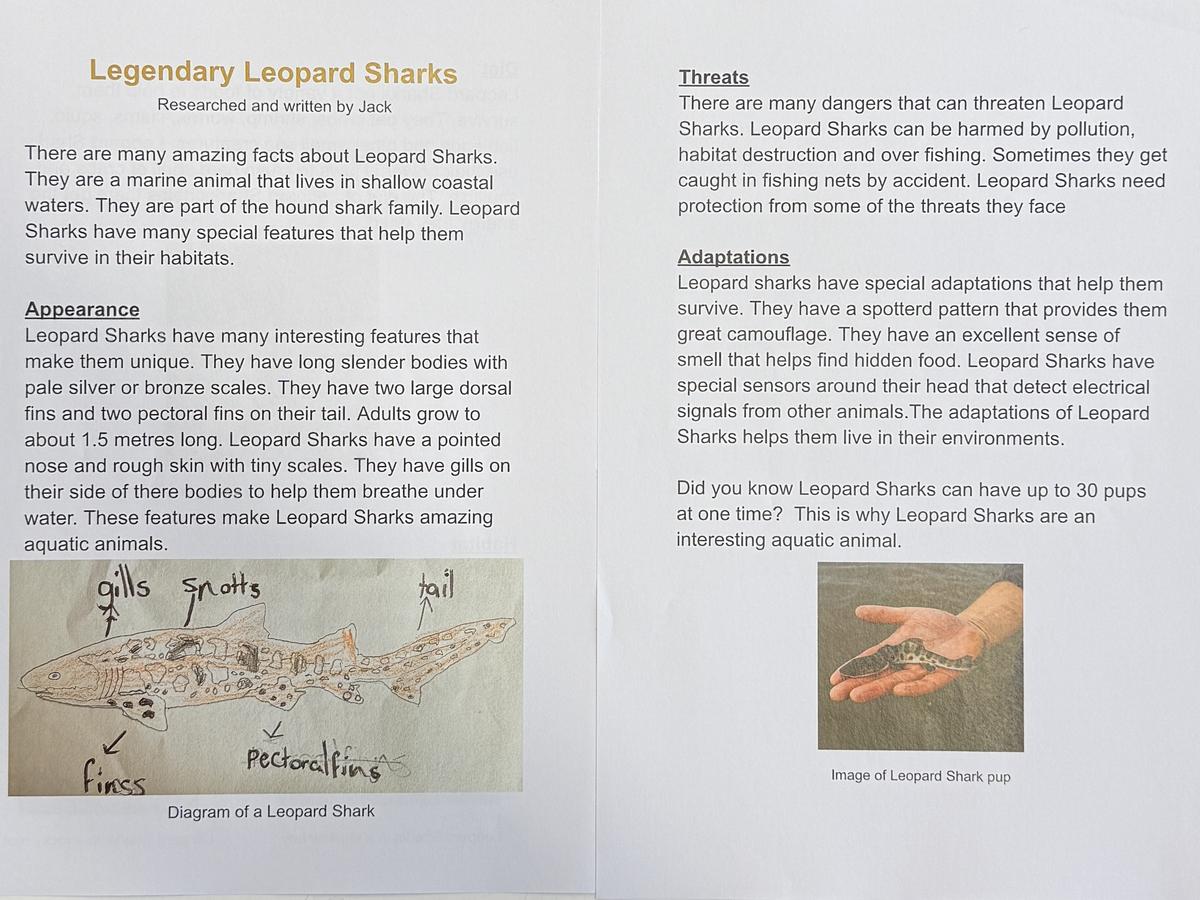 Legendary Leopard Sharks
Researched and written by Jack
There are many amazing facts about Leopard Sharks.
They are a marine animal that lives in shallow coastal
waters. They are part of the hound shark family. Leopard
Sharks have many special features that help them
survive in their habitats.
Appearance
Leopard Sharks have many interesting features that
make them unique. They have long slender bodies with
pale silver or bronze scales. They have two large dorsal
fins and two pectoral fins on their tail. Adults grow to
about 1.5 metres long. Leopard Sharks have a pointed
nose and rough skin with tiny scales. They have gills on
their side of there bodies to help them breathe under
water. These features make Leopard Sharks amazing
aquatic animals.
gills spotts tail
finss
pectoral fins
Diagram of a Leopard Shark
Threats
There are many dangers that can threaten Leopard
Sharks. Leopard Sharks can be harmed by pollution,
habitat destruction and over fishing. Sometimes they get
caught in fishing nets by accident. Leopard Sharks need
protection from some of the threats they face
Adaptations
Leopard sharks have special adaptations that help them
survive. They have a spotterd pattern that provides them
great camouflage. They have an excellent sense of
smell that helps find hidden food. Leopard Sharks have
special sensors around their head that detect electrical
signals from other animals.The adaptations of Leopard
Sharks helps them live in their environments.
Did you know Leopard Sharks can have up to 30 pups
at one time?  This is why Leopard Sharks are an
interesting aquatic animal.
Image of Leopard Shark pup